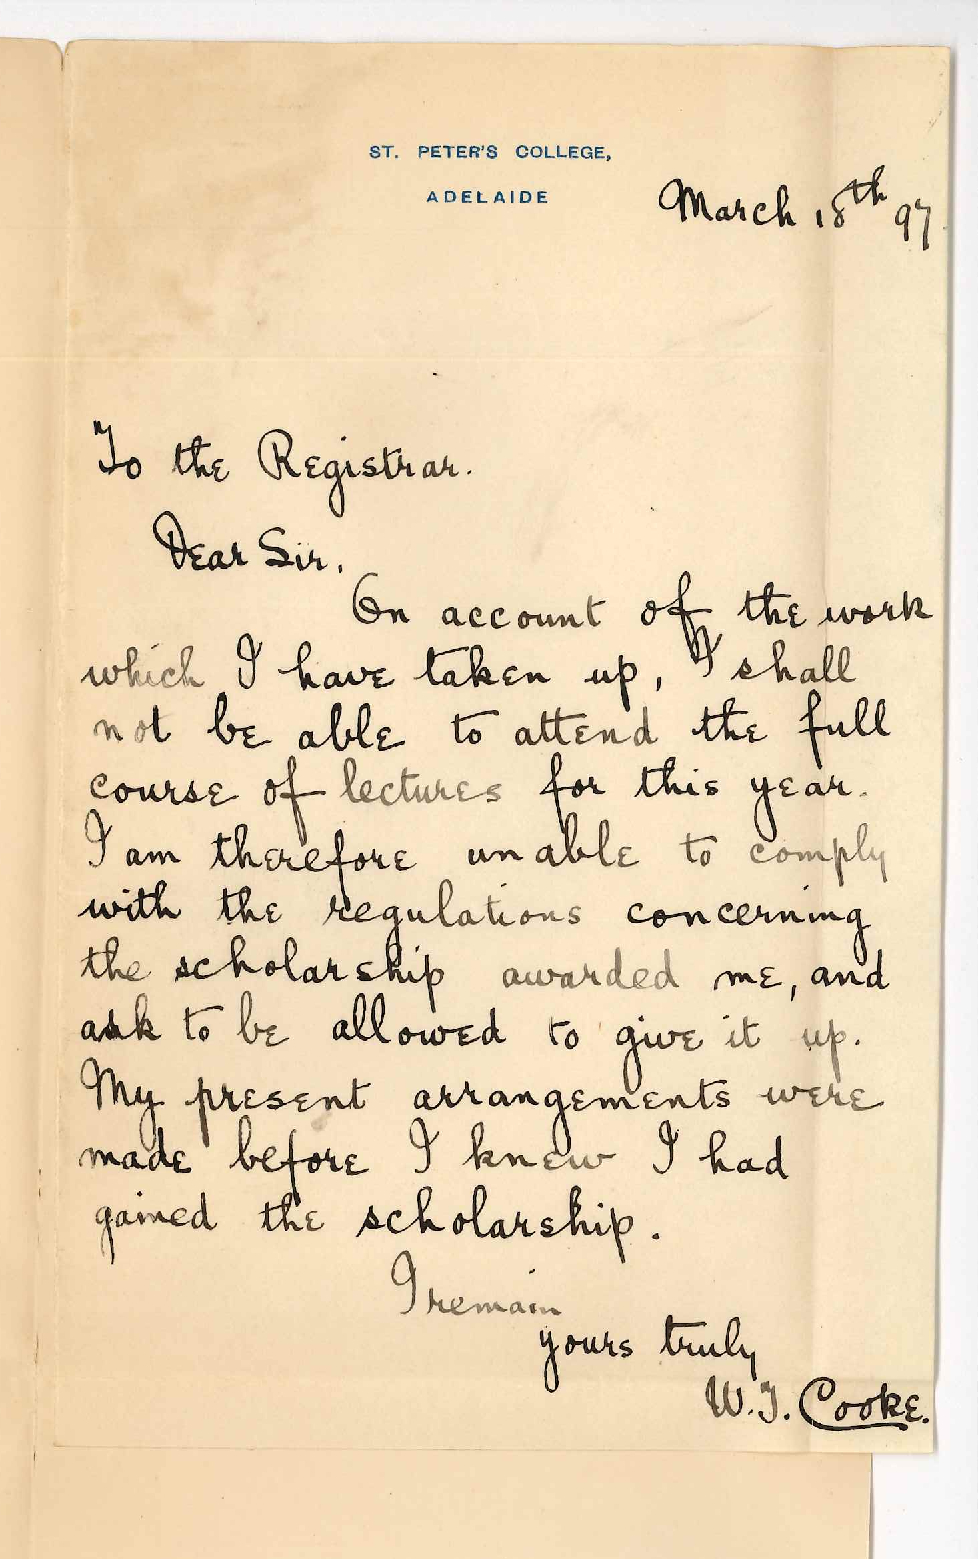 ST. PETER'S COLLEGE,
ADELAIDE
March 18th 97
To the Registrar.
Dear Sir,
On account of the work
which I have taken up, I shall
not be able to attend the full
course of lectures for this year.
I am therefore unable to comply
with the regulations concerning
the scholarship awarded me, and
ask to be allowed to give it up.
My present arrangements were
made before I knew I had
gained the scholarship.
I remain
yours truly
W.T. Cooke.